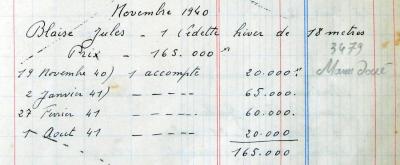 Novembre 1940
Blaise Jules - 1 Cédette hiver de 18 metres
Prix - 165.000
3479
19 Novembre 40) 1 accompte 20.000
2 Janvier 41) - - - - - 65.000
27 Février 41 - - - - - 60.000
1 Aout 41 - - - - - 20.000
165.000